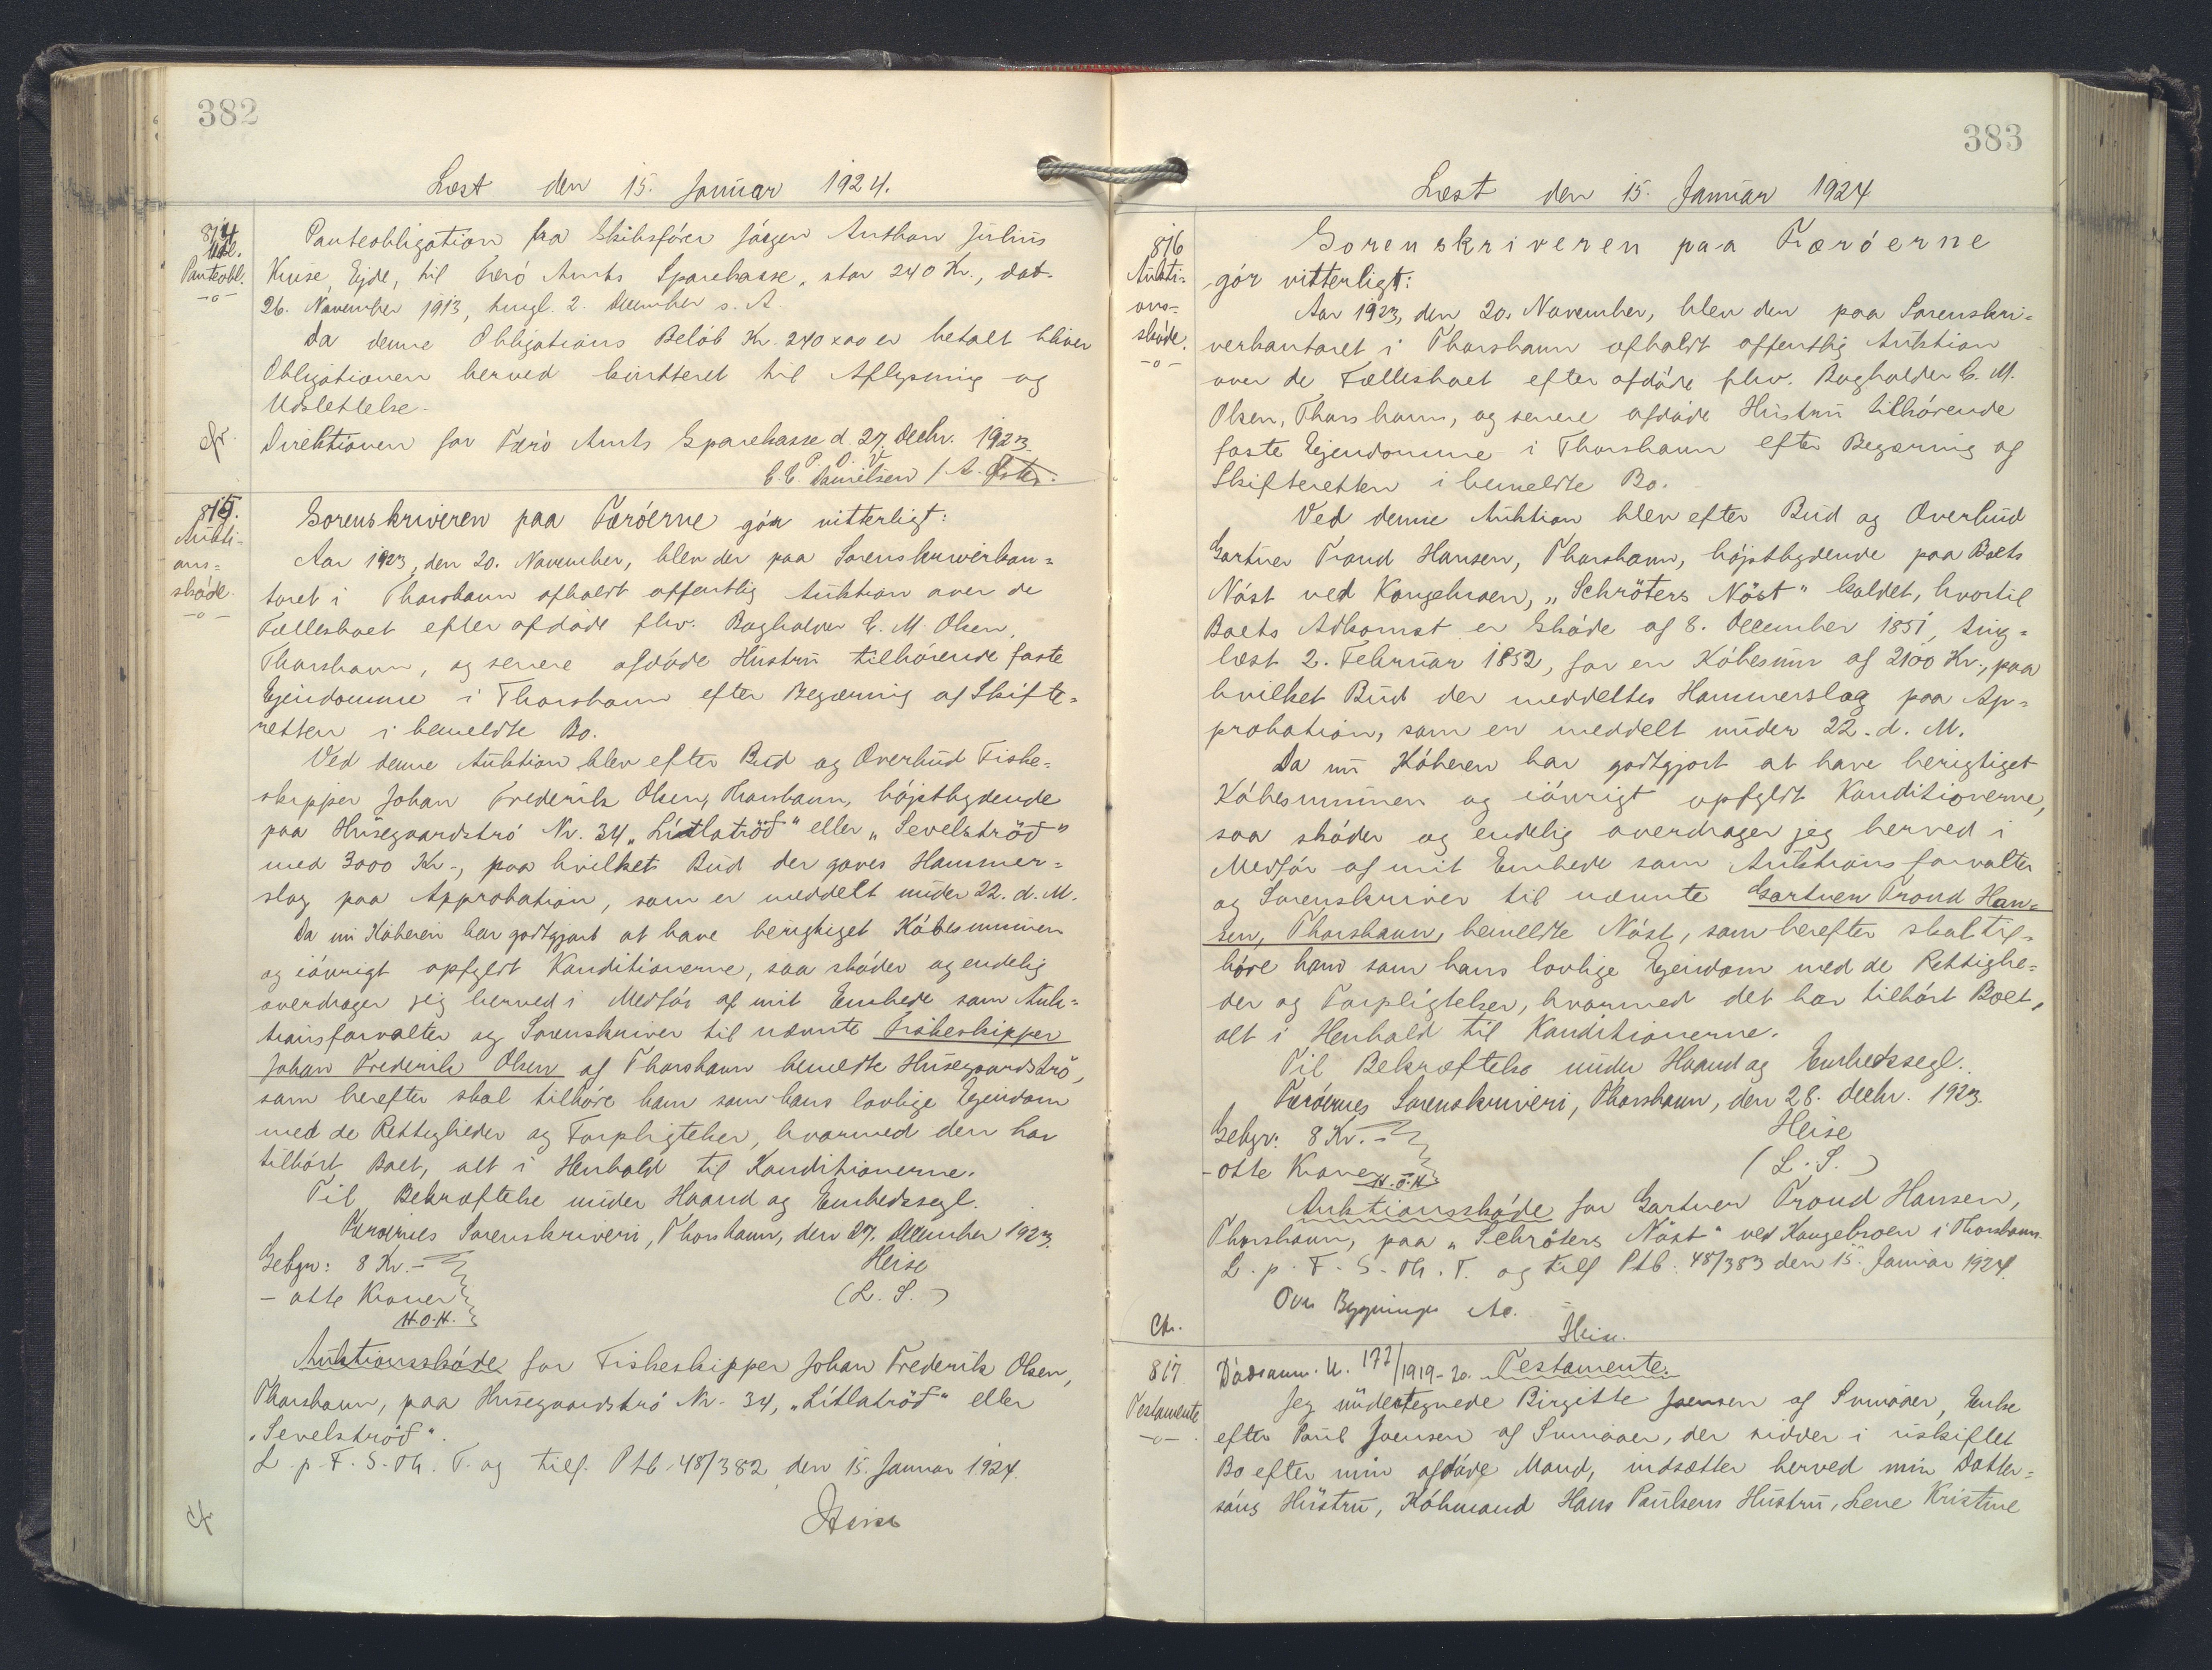 382
Læst den 15. Januar 1924.
814
Udl.
Panteobl.
Panteobligation fra Skibsfører Jörgen Anthon Julius
Kruse, Ejde, til Færö Amts Sparekasse, stor 240 Kr., dat.
26. November 1913, tingl. 2. December s. A.
Da denne Obligations Belöb Kr. 240 x 00 er betalt bliver
Obligationen herved kvitteret til Aflysning og
Udslettelse.
Direktionen for Færö Amts Sparekasse d. 27. Decbr. 1923.
P. D. V.
C. C. Danielsen / A. Öster.
cfr.
815.
Aukti-
ons-
skøde.
Sorenskriveren paa Færöerne gör vitterligt:
Aar 1923, den 20. November, blev der paa Sorenskriverkon-
toret i Thorshavn afholdt offentlig Auktion over de
Fællesboet efter afdöde fhv. Bogholder C. M. Olsen,
Thorshavn, og senere afdöde Hustru tilhörende faste
Ejendomme i Thorshavn efter Begæring af Skifte-
retten i bemeldte Bo.
Ved denne Auktion blev efter Bud og Overbud Fiske-
skipper Johan Frederik Olsen, Thorshavn, höjstbydende
paa Husegaardströ Nr. 34 „Lítlatröð" eller „Sevelströð"
med 3000 Kr., paa hvilket Bud der gaves Hammer-
slag paa Approbation, som er meddelt under 22. d. M.
Da nu Köberen har godtgjort at have berigtiget Köbesummen
og iövrigt opfyldt Konditionerne, saa sköder og endelig
overdrager jeg herved i Medför af mit Embede som Auk-
tionsforvalter og Sorenskriver til nævnte Fiskeskipper
Johan Frederik Olsen af Thorshavn bemeldte Husegaardströ,
som herefter skal tilhöre ham som hans lovlige Ejendom
med de Rettigheder og Forpligtelser, hvormed den har
tilhört Boet, alt i Henhold til Konditionerne.
Til Bekræftelse under Haand og Embedssegl.
Færöernes Sorenskriveri, Thorshavn, den 27. December 1923.
Gebyr: 8 Kr. -
Heise
- otte Kroner
(L. S.)
H.O.H.
Auktionssköde for Fiskeskipper Johan Frederik Olsen,
Thorshavn, paa Husegaardströ Nr. 34, „Lítlatröð" eller
„Sevelströð".
L. p. F. S. Th. T. og tilf. Ptb. 48/382 den 15. Januar 1924.
Heise
cfr.
383
Læst den 15. Januar 1924
816
Aukti-
ons-
sköde.
Sorenskriveren paa Færöerne
gör vitterligt:
Aar 1923, den 20. November, blev der paa Sorenskri-
verkontoret i Thorshavn afholdt offentlig Auktion
over de Fællesboet efter afdöde fhv. Bogholder C. M.
Olsen, Thorshavn, og senere afdöde Hustru tilhörende
faste Ejendomme i Thorshavn efter Begæring af
Skifteretten i bemeldte Bo.
Ved denne Auktion blev efter Bud og Overbud
Gartner Trond Hansen, Thorshavn, höjstbydende paa Boets
Nöst ved Kongebroen, „Schröters Nöst" kaldet, hvortil
Boets Adkomst er Sköde af 8. December 1851, ting-
læst 2. Februar 1852, for en Köbesum af 2100 Kr., paa
hvilket Bud der meddeltes Hammerslag paa Ap-
probation, som er meddelt under 22. d. M.
Da nu Köberen har godtgjort at have berigtiget
Köbesummen og iövrigt opfyldt Konditionerne,
saa sköder og endelig overdrager jeg herved i
Medför af mit Embede som Auktionsforvalter
og Sorenskriver til nævnte Gartner Trond Han-
sen, Thorshavn, bemeldte Nöst, som herefter skal til-
höre ham som hans lovlige Ejendom med de Rettighe-
der og Forpligtelser, hvormed det har tilhört Boet,
alt i Henhold til Konditionerne.
Til Bekræftelse under Haand og Embedssegl.
Færöernes Sorenskriveri, Thorshavn, den 28. Decbr. 1923.
Gebyr: 8 Kr. -
Heise
- otte Kroner
(L. S.)
H.O.H.
Auktionssköde for Gartner Trond Hansen,
Thorshavn, paa „Schröters Nöst" ved Kongebroen i Thorshavn.
L. p. F. S. Th. T. og tilf. Ptb. 48/383 den 15. Januar 1924.
Ovs Bygninger
Heise.
Cfr.
817
Testamente
Dödsanm. N. 177/1919-20. Testamente.
Jeg undertegnede Birgitte Joensen af Sumböer, Enke
efter Poul Joensen af Sumböer, der sidder i uskiftet
Bo efter min afdöde Mand, indsætter herved min Datter-
söns Hustru, Köbmand Hans Paulsens Hustru, Lene Kristine